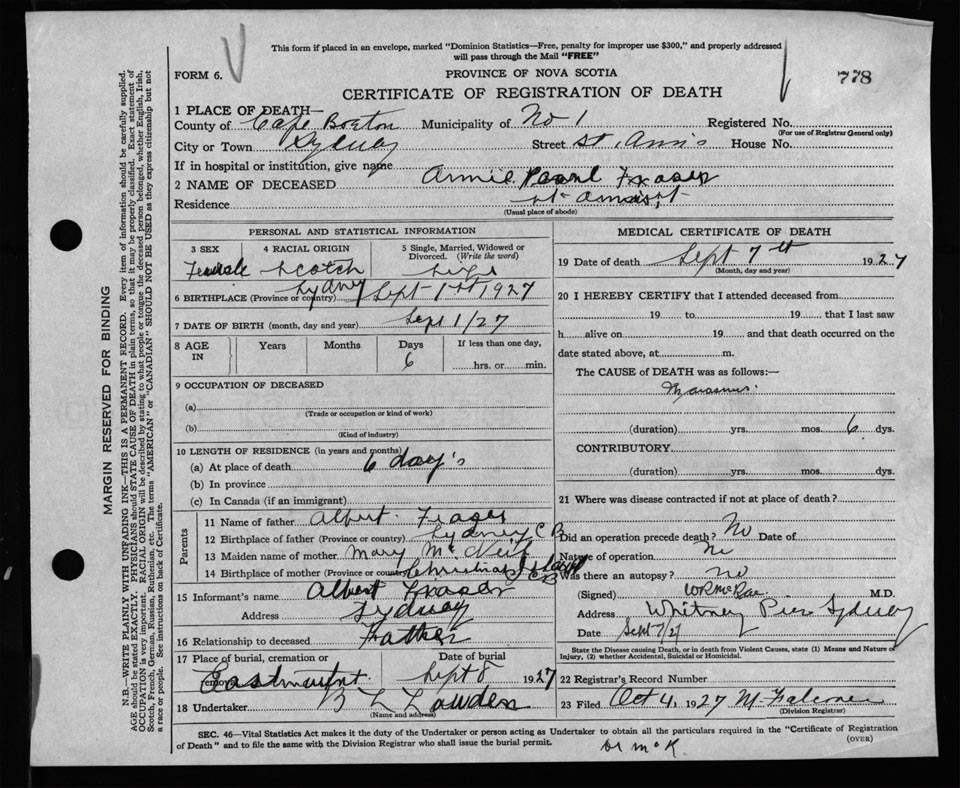 This form if placed in an envelope, marked "Dominion Statistics—Free, penalty for improper use $300," and properly addressed
will pass through the Mail "FREE"
FORM 6.
PROVINCE OF NOVA SCOTIA
778
CERTIFICATE OF REGISTRATION OF DEATH
1 PLACE OF DEATH—
County of Cape Breton Municipality of No 1 Registered No.
(For use of Registrar General only)
City or Town Sydney Street St Ann's House No.
If in hospital or institution, give name
2 NAME OF DECEASED Annie Pearl Fraser
Residence
(Usual place of abode)
PERSONAL AND STATISTICAL INFORMATION
3 SEX 4 RACIAL ORIGIN 5 Single, Married, Widowed or Divorced. (Write the word)
Female Scotch
6 BIRTHPLACE (Province or country) Sydney Sept 1st 1927
7 DATE OF BIRTH (month, day and year) Sept 1/27
8 AGE IN Years Months Days If less than one day,
6 hrs. or min.
9 OCCUPATION OF DECEASED
(a)
(Trade or occupation or kind of work)
(b)
(Kind of industry)
10 LENGTH OF RESIDENCE (in years and months)
(a) At place of death 6 day's
(b) In province
(c) In Canada (if an immigrant)
Parents
11 Name of father Albert Fraser
12 Birthplace of father (Province or country) Sydney C B
13 Maiden name of mother Mary McNeil
14 Birthplace of mother (Province or country) Christmas Island C B
15 Informant's name Albert Fraser
Address Sydney
16 Relationship to deceased Father
17 Place of burial, cremation or removal Date of burial
Eastmount Sept 8 1927
18 Undertaker B L Lowden
(Name and address)
MEDICAL CERTIFICATE OF DEATH
19 Date of death Sept 7th 1927
(Month, day and year)
20 I HEREBY CERTIFY that I attended deceased from
19 to 19 that I last saw
h alive on 19 and that death occurred on the
date stated above, at m.
The CAUSE of DEATH was as follows:—
Marasmus.
(duration) yrs. mos. 6 dys.
CONTRIBUTORY
(duration) yrs. mos. dys.
21 Where was disease contracted if not at place of death?
Did an operation precede death? No Date of
Nature of operation No
Was there an autopsy? no
(Signed) WR McRae M.D.
Address Whitney Pier Sydney
Date Sept 7/27
State the Disease causing Death, or in death from Violent Causes, state (1) Means and Nature of
Injury, (2) whether Accidental, Suicidal or Homicidal.
22 Registrar's Record Number
23 Filed Oct 4, 1927
(Division Registrar)
SEC. 46—Vital Statistics Act makes it the duty of the Undertaker or person acting as Undertaker to obtain all the particulars required in the "Certificate of Registration
of Death" and to file the same with the Division Registrar who shall issue the burial permit.
(OVER)
Dr McK.
MARGIN RESERVED FOR BINDING
N.B.—WRITE PLAINLY WITH UNFADING INK—THIS IS A PERMANENT RECORD. Every item of information should be carefully supplied.
AGE should be stated EXACTLY. PHYSICIANS should STATE CAUSE OF DEATH in plain terms, so that it may be properly classified. Exact statement of
OCCUPATION is very important. RACIAL ORIGIN will be described by stating to what people or tongue the deceased person belonged, whether English, Irish,
Scotch, French, German, Russian, Ruthenian, etc. The terms "AMERICAN" or "CANADIAN" SHOULD NOT BE USED as they express citizenship but not
a race or people. See instructions on back of Certificate.